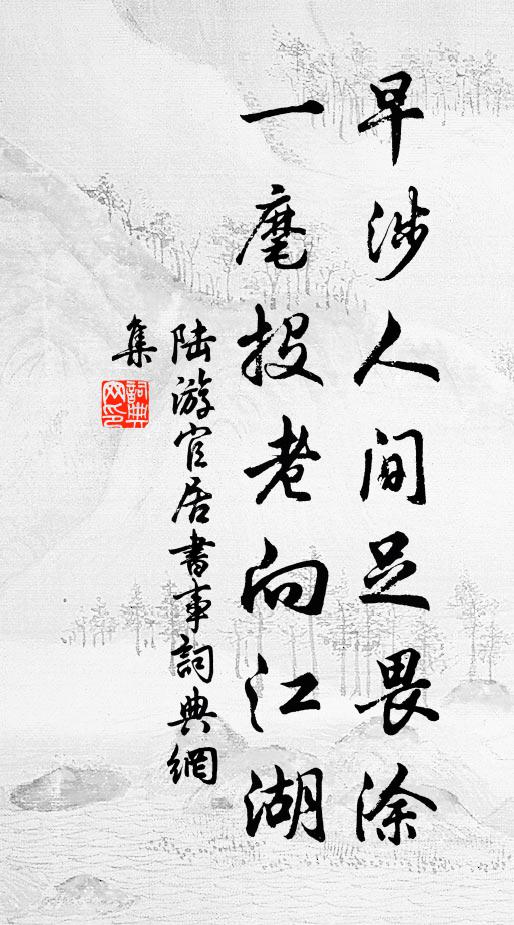 早涉人间足畏涂
一麾投老向江湖
陆游官居書事詞典網
集
詞典網印